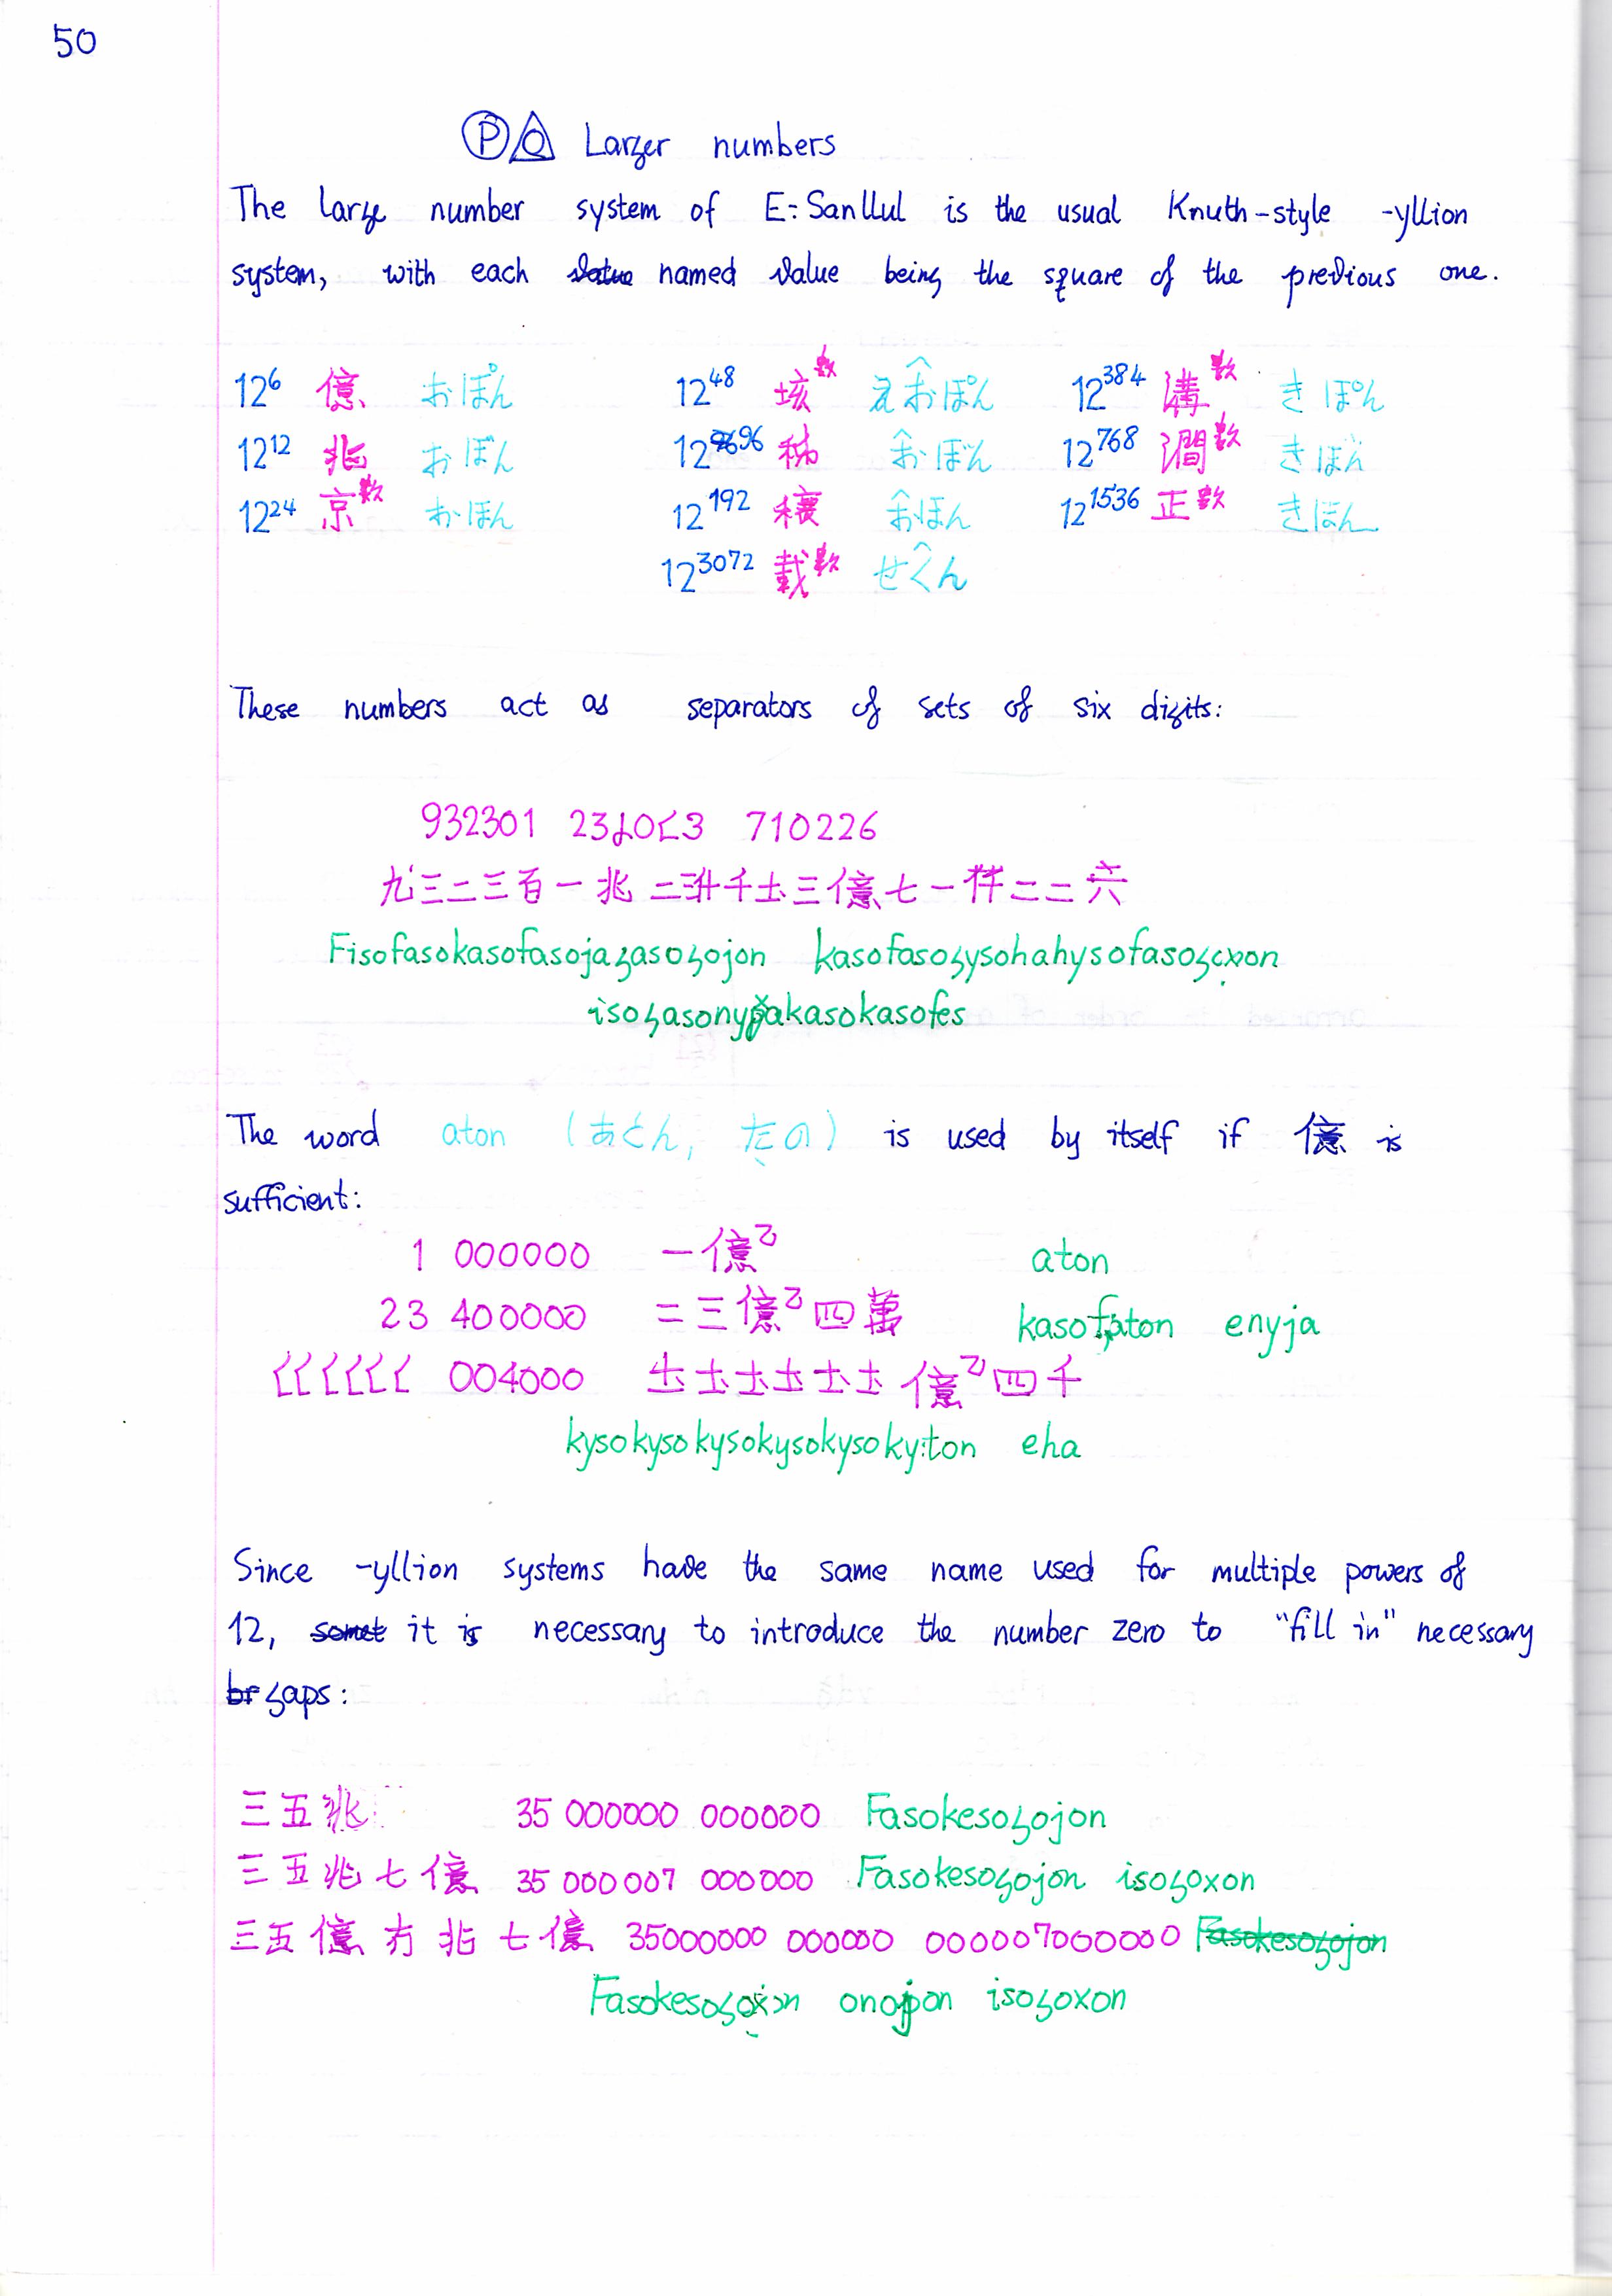 50
P Larger numbers
The large number system of E:Sanllul is the usual Knuth-style -yllion
system, with each named value being the square of the previous one.
12⁶ 億 おぽん 12⁴⁸ 垓数 えおぽん 12³⁸⁴ 溝数 きぽん
12¹² 兆 おぼん 12⁹⁶ 秭 おぼん 12⁷⁶⁸ 澗数 きぼん
12²⁴ 京数 おほん 12¹⁹² 穣 おほん 12¹⁵³⁶ 正数 きほん
12³⁰⁷² 載数 せくん
These numbers act as separators of sets of six digits:
932301 710226
九三二三百一兆 三億七一 二二六
Fisofasokasofasojagasogojon kasofasogysohahysofasogoxon
isogasonypakasokasofes
The word aton (あとん, たの) is used by itself if 億 is
sufficient:
1 000000 一億 aton
23 400000 二三億 四萬 kasofaton enyja
004000 億 四千
kysokysokysokysokysoky:ton eha
Since -yllion systems have the same name used for multiple powers of
12, it is necessary to introduce the number zero to "fill in" necessary
gaps:
三五兆 35 000000 000000 Fasokesogojon
三五兆七億 35 000007 000000 Fasokesogojon isogoxon
三五億 兆七億 35000000 000000 000007000000 Fasokesogojon
Fasokesogoxon onojon isogoxon